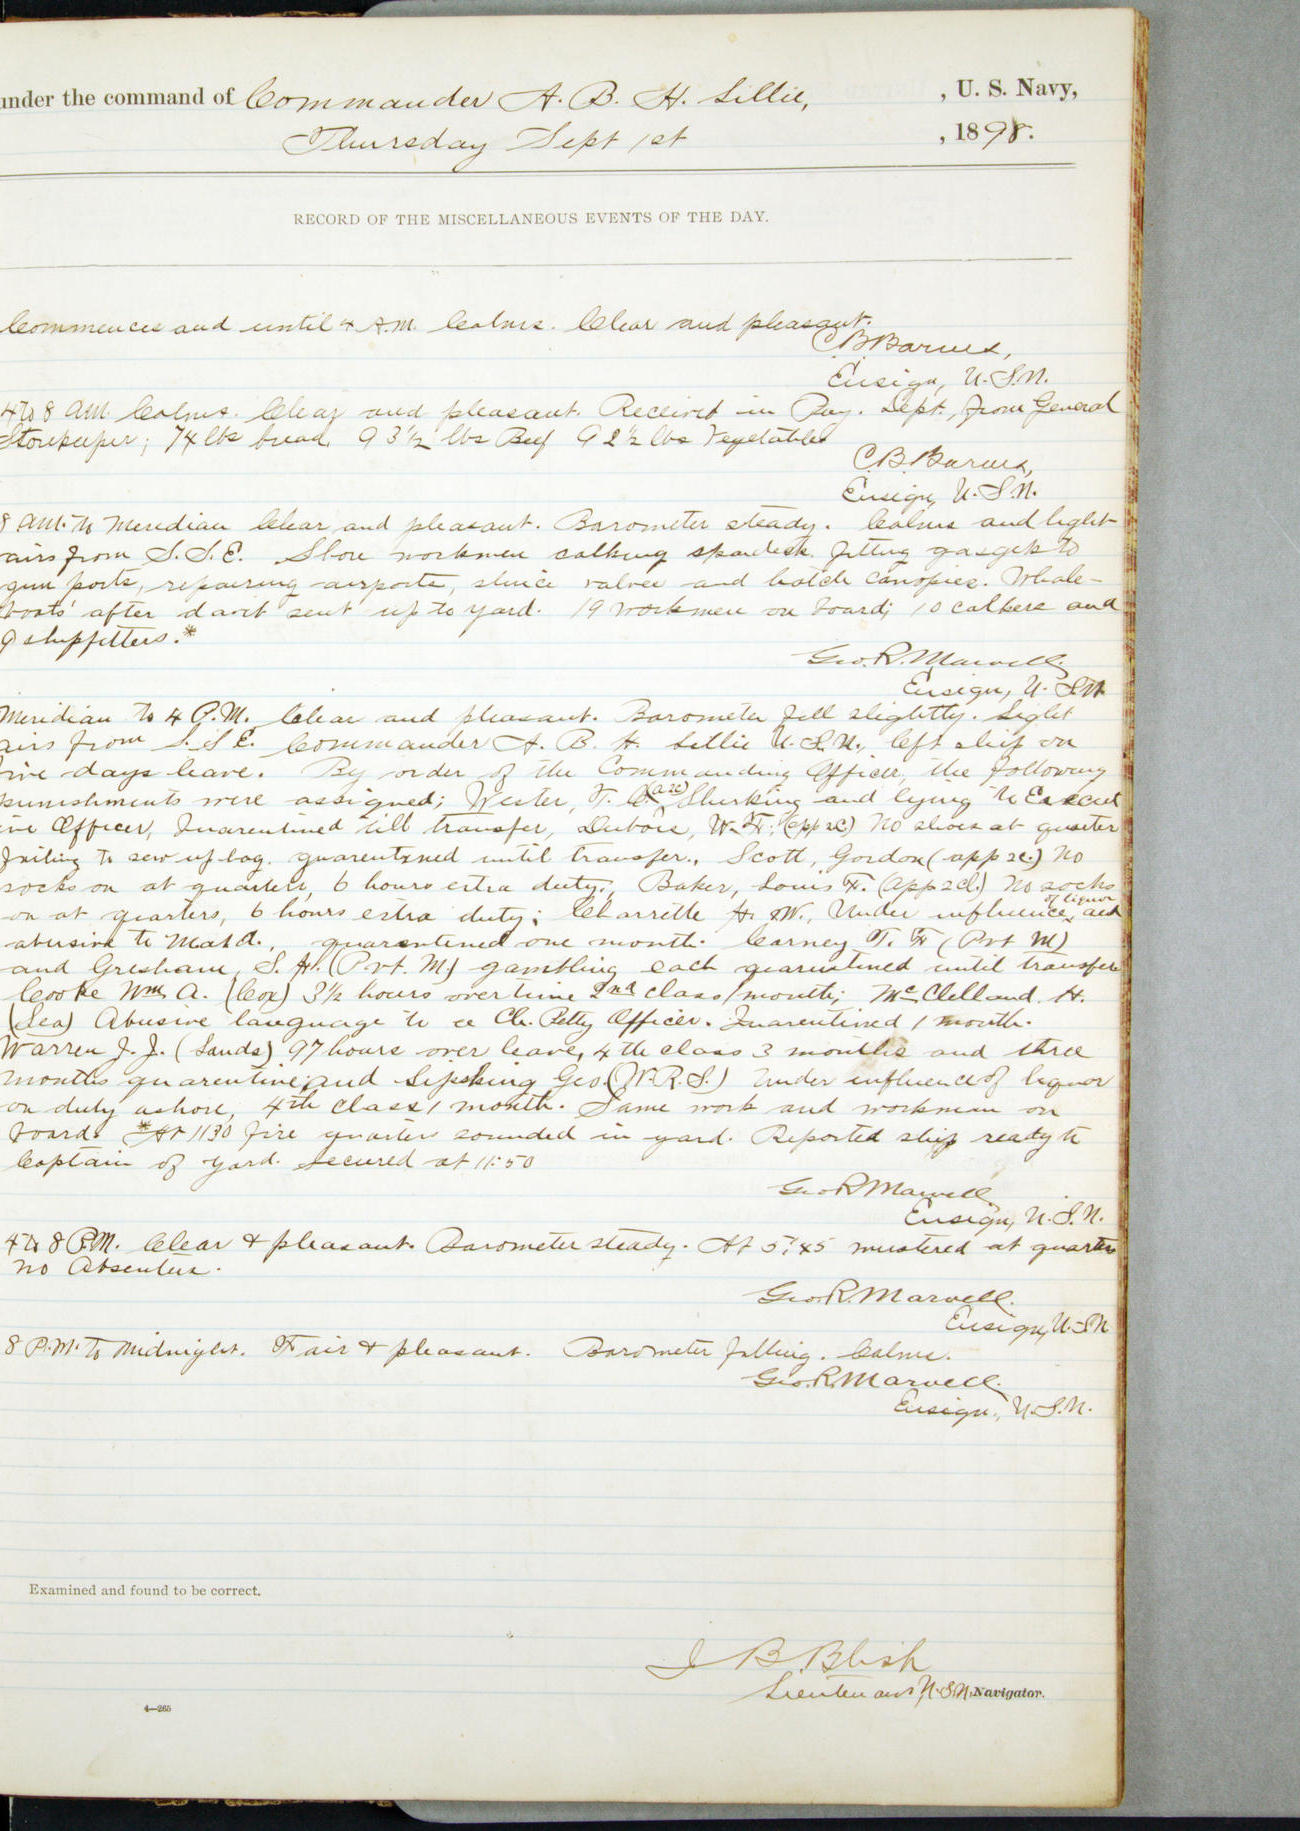 under the command of Commander A. B. H. Lillie, , U. S. Navy,
Thursday Sept 1st , 1898.
RECORD OF THE MISCELLANEOUS EVENTS OF THE DAY.
Commences and until 4 A.M. Calms. Clear and pleasant.
C B Barnes,
Ensign, U.S.N.
4 to 8 AM. Calms. Clear and pleasant. Received in Pay. Dept., from General
Storekeeper; 74 lbs bread, 93½ lbs Beef 92½ lbs Vegetables
C. B. Barnes,
Ensign, U.S.N.
8 AM. to Meridian Clear and pleasant. Barometer steady. Calms and light
airs from S.S.E. Shore workmen calking spardeck fitting gaskets to
gun ports, repairing airports, sluice valves and hatch canopies. Whale-
boats' after davit sent up to yard. 19 workmen on board; 10 calkers and
9 shipfitters.*
Geo. R. Marvell
Ensign, U.S.N.
Meridian to 4 P.M. Clear and pleasant. Barometer fell slightly. Light
airs from S.S.E. Commander A. B. H. Lillie U.S.N., left ship on
five days leave. By order of the Commanding Officer, the following
punishments were assigned; Wester, T. Shirking and lying to Execut
ive Officer, Quarentined till transfer, Dubois, W. F. (app 2c) No shoes at quarters
failing to sew up bag. quarentined until transfer., Scott, Gordon (app 2c.) No
socks on at quarters, 6 hours extra duty., Baker, Louis F. (App 2cl.) No socks
on at quarters, 6 hours extra duty; Charrette H. W., Under influence of liquor and
abusive to Mat d., quarentined one month. Carney T. F (Pvt M)
and Gresham, S. H. (Pvt. M) gambling each quarentined until transfer
Cooke Wm A. (Cox) 3½ hours overtime 2nd class 1 month; McClelland. H.
(Sea) Abusive language to a Ch. Petty Officer. Quarentined 1 month.
Warren J. J. (Lands) 97 hours over leave, 4th class 3 months and three
months quarentine; and Sipsking Geo. (W.R.S.) Under influence of liquor
on duty ashore, 4th class 1 month. Same work and workmen on
board. *At 1130 fire quarters sounded in yard. Reported ship ready to
Captain of yard. Secured at 11:50
Geo R Marvell
Ensign, U.S.N.
4 to 8 P.M. Clear & pleasant. Barometer steady. At 5:45 mustered at quarters
no Absentees.
Geo. R. Marvell.
Ensign, U.S.N
8 P.M. to Midnight. Fair & pleasant. Barometer falling. Calms.
Geo. R. Marvell.
Ensign, U.S.N.
Examined and found to be correct.
J B Blish
Lieutenant, U.S.N., Navigator.
4—265